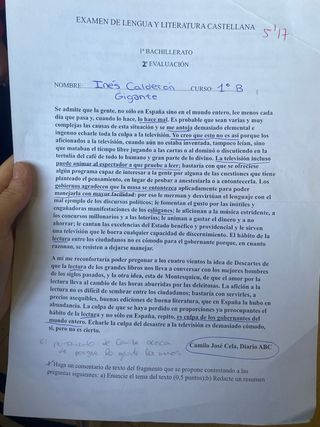 EXAMEN DE LENGUA Y LITERATURA CASTELLANA
5'17
1º BACHILLERATO
2ª EVALUACIÓN
NOMBRE: Inés Calderón CURSO: 1º B
Gigante
Se admite que la gente, no sólo en España sino en el mundo entero, lee menos cada
día que pasa y, cuando lo hace, lo hace mal. Es probable que sean varias y muy
complejas las causas de esta situación y se me antoja demasiado elemental e
ingenuo echarle toda la culpa a la televisión. Yo creo que esto no es así porque los
aficionados a la televisión, cuando aún no estaba inventada, tampoco leían, sino
que mataban el tiempo libre jugando a las cartas o al dominó o discutiendo en la
tertulia del café de todo lo humano y gran parte de lo divino. La televisión incluso
puede animar al espectador a que pruebe a leer; bastaría con que se ofreciese
algún programa capaz de interesar a la gente por alguna de las cuestiones que tienen
planteado el pensamiento, en lugar de probar a anestesiarla o a entontecerla. Los
gobiernos agradecen que la masa se entontezca aplicadamente para poder
manejarla con mayor facilidad: por eso le merman y desvirtúan el lenguaje con el
mal ejemplo de los discursos políticos; le fomentan el gusto por las inútiles y
engañadoras manifestaciones de los eslóganes; le aficionan a la música estridente, a
los concursos millonarios y a las loterías; le animan a gastar el dinero y a no
ahorrar; le cantan las excelencias del Estado benéfico y providencial y le sirven
una televisión que le borra cualquier capacidad de discernimiento. El hábito de la
lectura entre los ciudadanos no es cómodo para el gobernante porque, en cuanto
razonan, se resisten a dejarse manejar.
A mí me reconfortaría poder pregonar a los cuatro vientos la idea de Descartes de
que la lectura de los grandes libros nos lleva a conversar con los mejores hombres
de los siglos pasados, y la otra idea, esta de Montesquieu, de que el amor por la
lectura lleva al cambio de las horas aburridas por las deleitosas. La afición a la
lectura no es difícil de sembrar entre los ciudadanos; bastaría con servirles, a
precios asequibles, buenas ediciones de buena literatura, que en España la hubo en
abundancia. La culpa de que se haya perdido en proporciones ya preocupantes el
hábito de la lectura y no sólo en España, repito, es culpa de los gobernantes del
mundo entero. Echarle la culpa del desastre a la televisión es demasiado cómodo,
sí, pero no es cierto.
Camilo José Cela, Diario ABC
El de Camilo acerca
de porqué la gente lee menos
1. Haga un comentario de texto del fragmento que se propone contestando a las
preguntas siguientes: a) Enuncie el tema del texto (0,5 puntos); b) Redacte un resumen